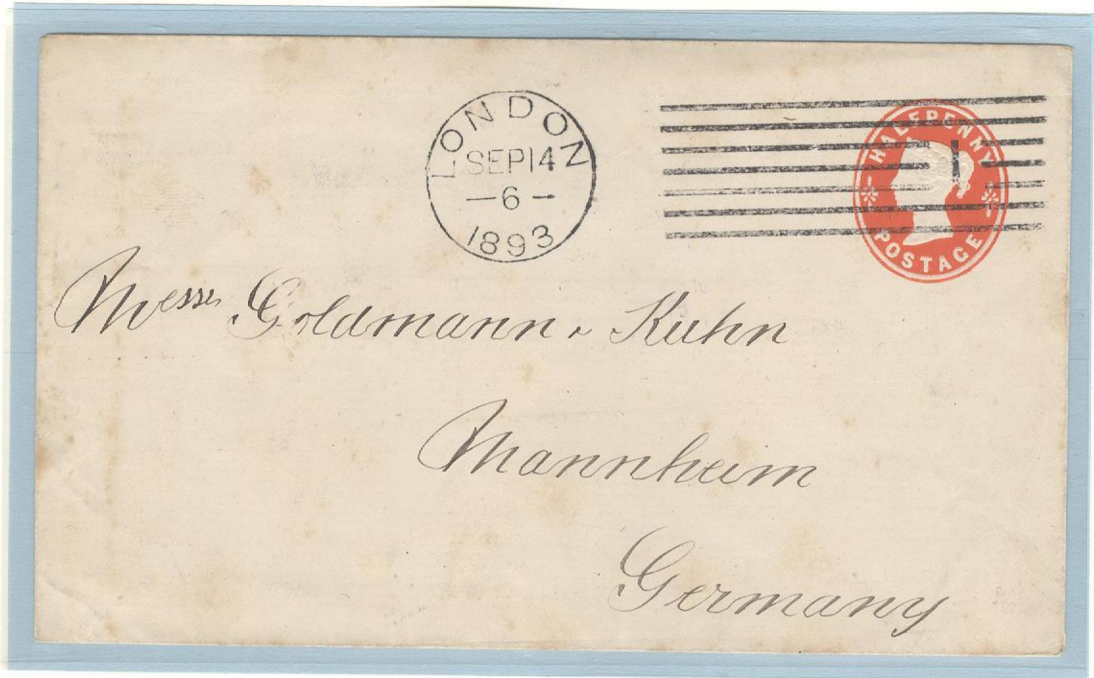 LONDON
SEP 14
—6—
1893
HALFPENNY
POSTAGE
1
Messrs Goldmann & Kuhn
Mannheim
Germany